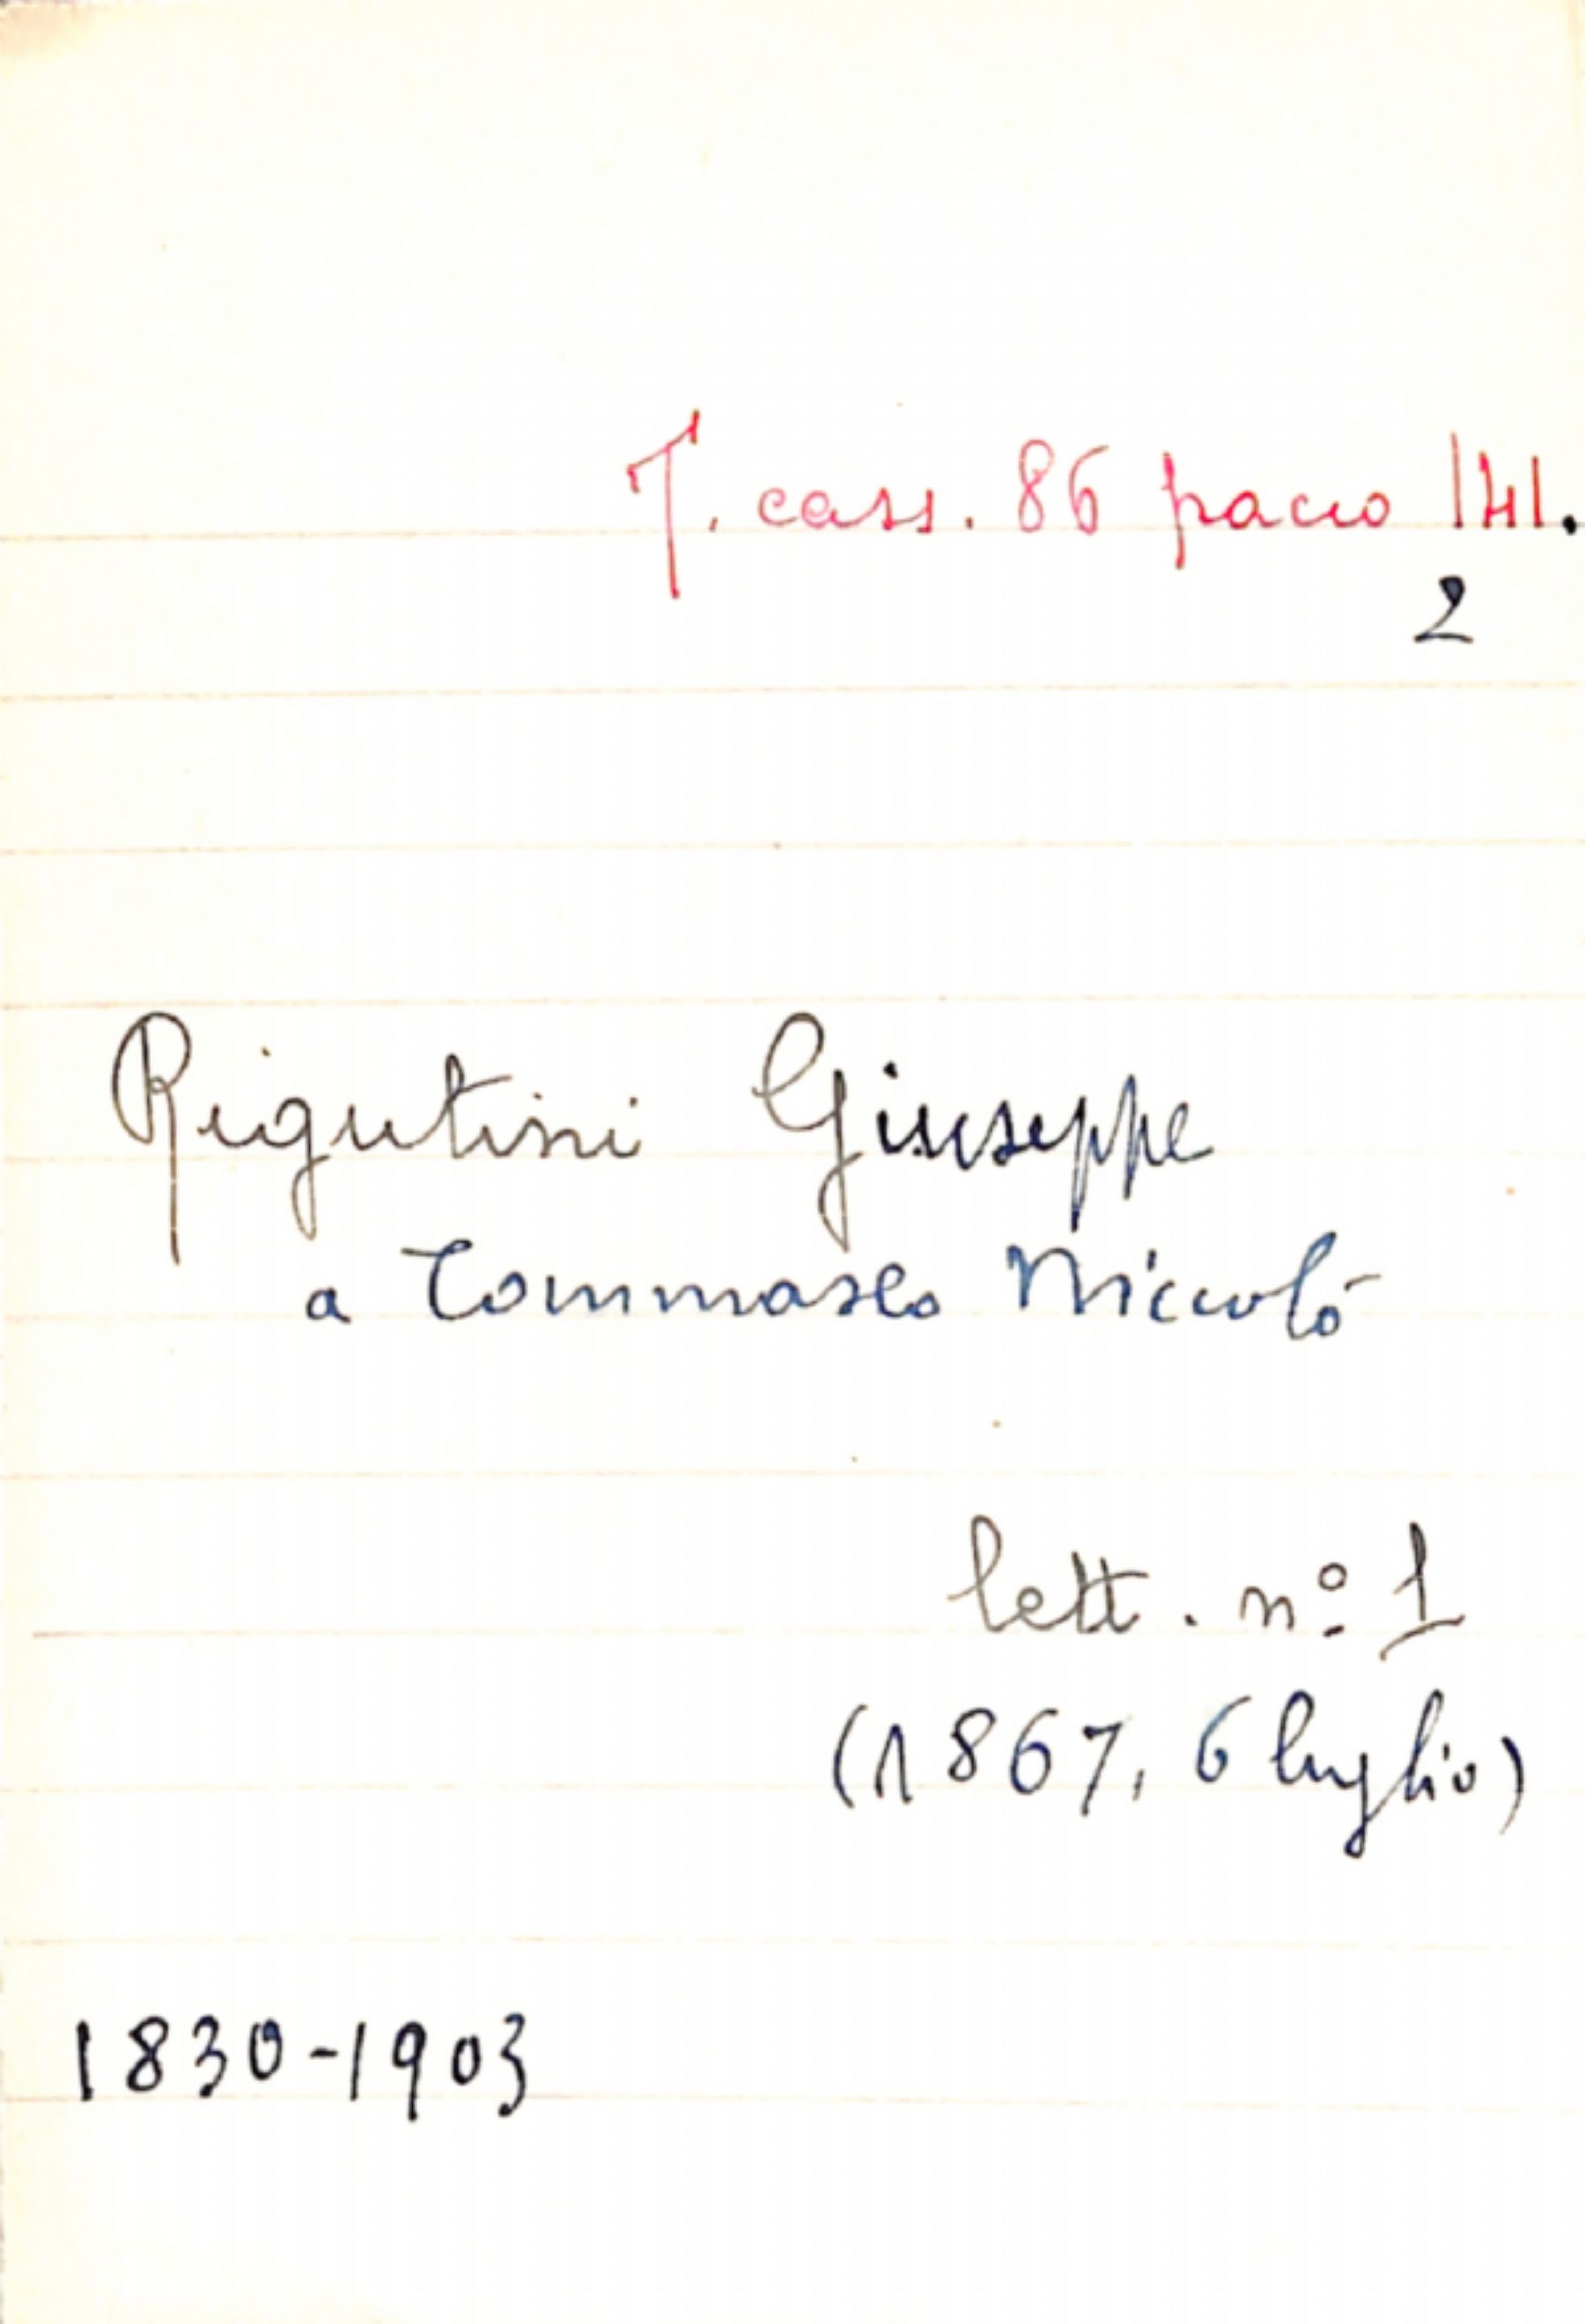 T. cass. 86 pacco 141.
2
Rigutini Giuseppe
a Tommaseo Niccolò
lett. nº 1
(1867, 6 luglio)
1830-1903